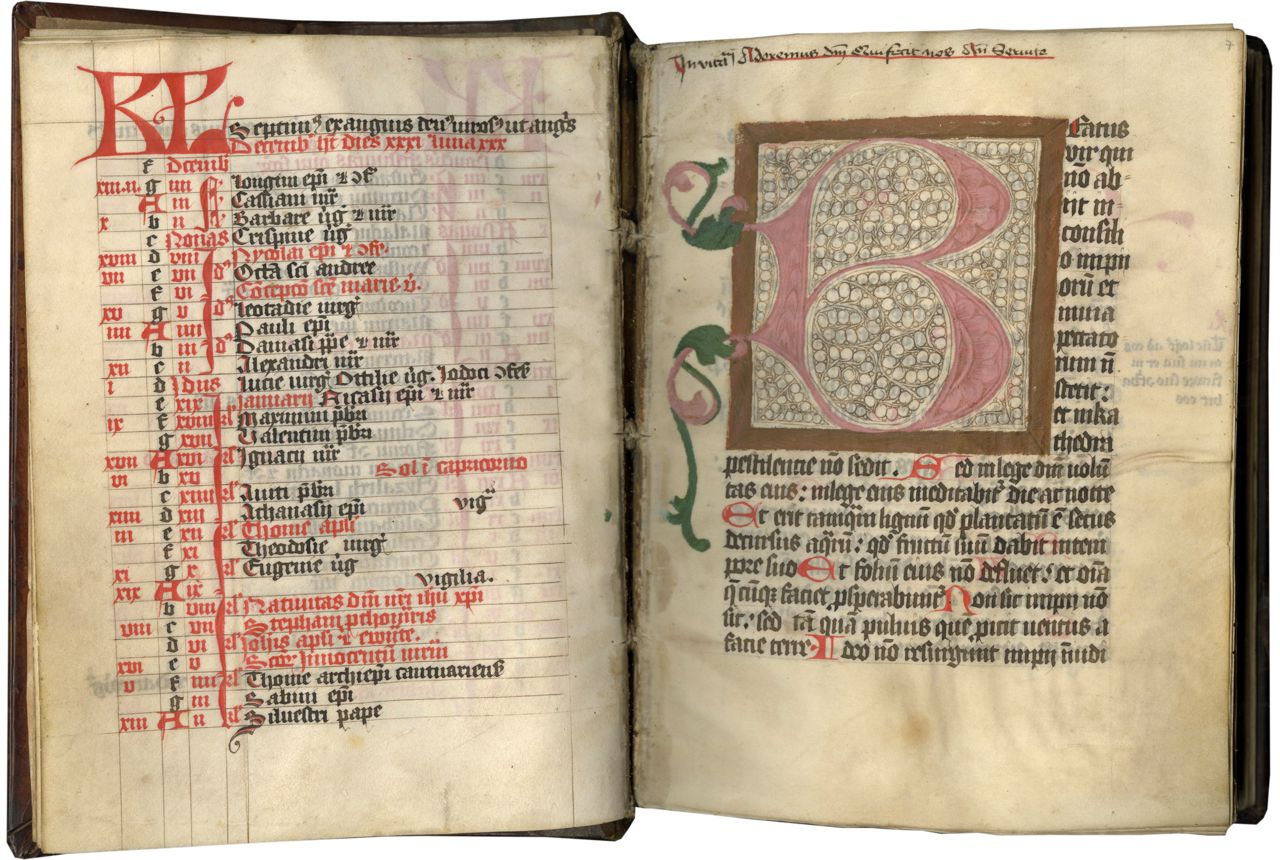 KL
Septim9 exanguis den9 viros9 ut angis
Decemb' ht dies xxxi luna xxx
f Decemb
xiii.ii. g iiii Longini epi & cf
A iii Cassiani mr
x b ii Barbare vg & mr
c Nonas Crispine vg
xviii d viii Nycolai epi & cf
vii e vii Octa sci andree
f vi Concepco sce marie v.
xv g v Leocadie virg
iiii A iiii Pauli epi
b iii Damasi ppe & mr
xii c ii Alexandri mr
i d Idus Lucie virg Ottilie vg. Jodoci cfes
e xix Januarii Nicasii epi & mr
ix f xviii kl Maximini pbri
g xvii Valentini pbri
xvii A xvi kl Ignacii mr
vi b xv Sol i capricorno
c xiiii kl Aviti pbri
xiiii d xiii Athanasii epi vig
iii e xii kl Thome apli
f xi Theodosie virg
xi g x kl Eugenie vg
xix A ix vigilia.
b viii kl Nativitas dni nri ihu xpi
viii c vii Stephani pthomris
d vi kl Johis apli & ewgte.
xvi e v Scor Innocentu mrm
v f iiii kl Thome archiepi cantuariens
g iii Sabini epi
xiii A ii kl Silvestri pape
Invita Adoremus dm Qui fecit nos An Servite
7
Beatus
vir qui
no ab-
iit in
consili
o impii
oru et
in via
peccato
rum n
stetit:
et in ka
thedra
pestilencie no sedit. Sed in lege dni volu
tas eius: in lege eius meditabit die ac nocte
Et erit tamqm lignum qd plantatu e secus
decursus aqru: qd fructu suu dabit in tem
pore suo Et foliu eius no defluet: et oia
q cuiq faciet psperabunt Non sit impii no
sic: sed ta qua pulvis que picit ventus a
facie terre Ideo no resurgunt impii in iudi